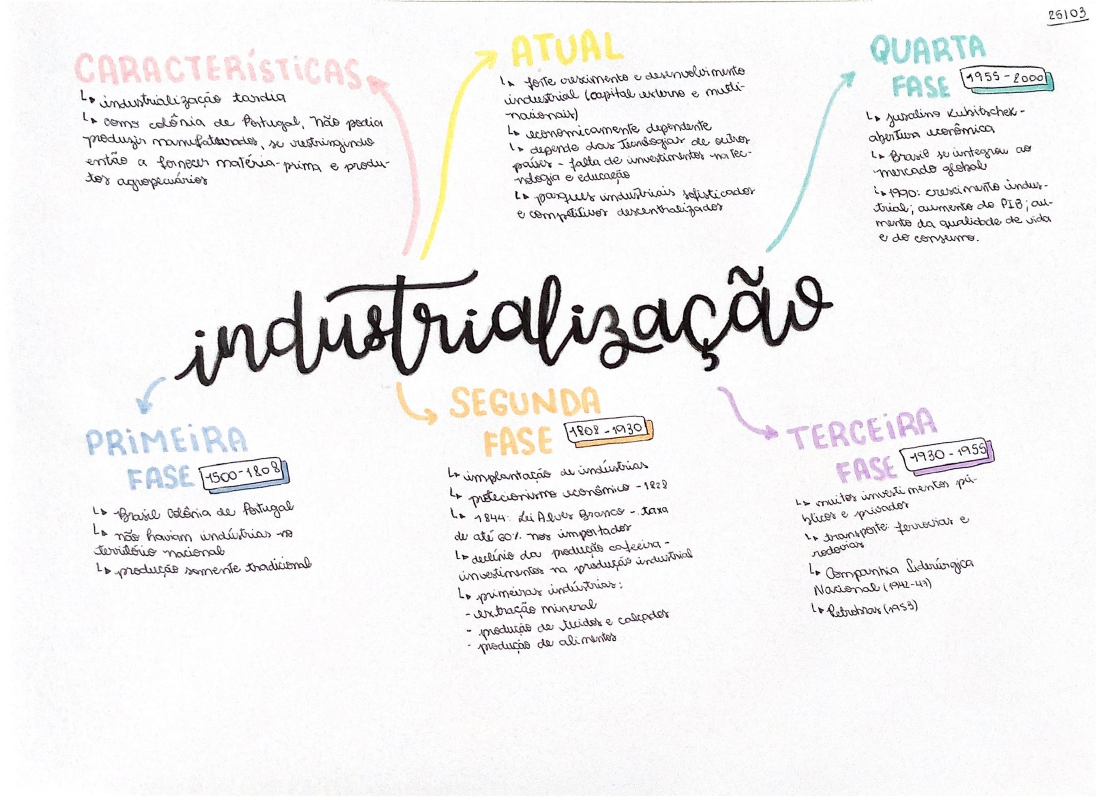 25/03
CARACTERÍSTICAS
↳ industrialização tardia
↳ como colônia de Portugal, não podia
produzir manufaturados, se restringindo
então a fornecer matéria-prima e produ-
tos agropecuários
ATUAL
↳ forte crescimento e desenvolvimento
industrial (capital externo e multi-
nacionais)
↳ economicamente dependente
↳ depende das tecnologias de outros
países - falta de investimentos na tec-
nologia e educação
↳ parques industriais sofisticados
e competitivos descentralizados
QUARTA
FASE 1955-2000
↳ Juscelino Kubitschek -
abertura econômica
↳ Brasil se integrou ao
mercado global
↳ 1990: crescimento indus-
trial; aumento do PIB; au-
mento da qualidade de vida
e do consumo.
industrialização
PRIMEIRA
FASE 1500-1808
↳ Brasil Colônia de Portugal
↳ não haviam indústrias no
território nacional
↳ produção somente tradicional
SEGUNDA
FASE 1808-1930
↳ implantação de indústrias
↳ protecionismo econômico - 1828
↳ 1844: Lei Alves Branco - taxa
de até 60% nos importados
↳ declínio da produção cafeeira -
investimentos na produção industrial
↳ primeiras indústrias:
- extração mineral
- produção de tecidos e calçados
- produção de alimentos
TERCEIRA
FASE 1930-1955
↳ muitos investimentos pú-
blicos e privados
↳ transporte: ferrovias e
rodovias
↳ Companhia Siderúrgica
Nacional (1942-47)
↳ Petrobras (1953)